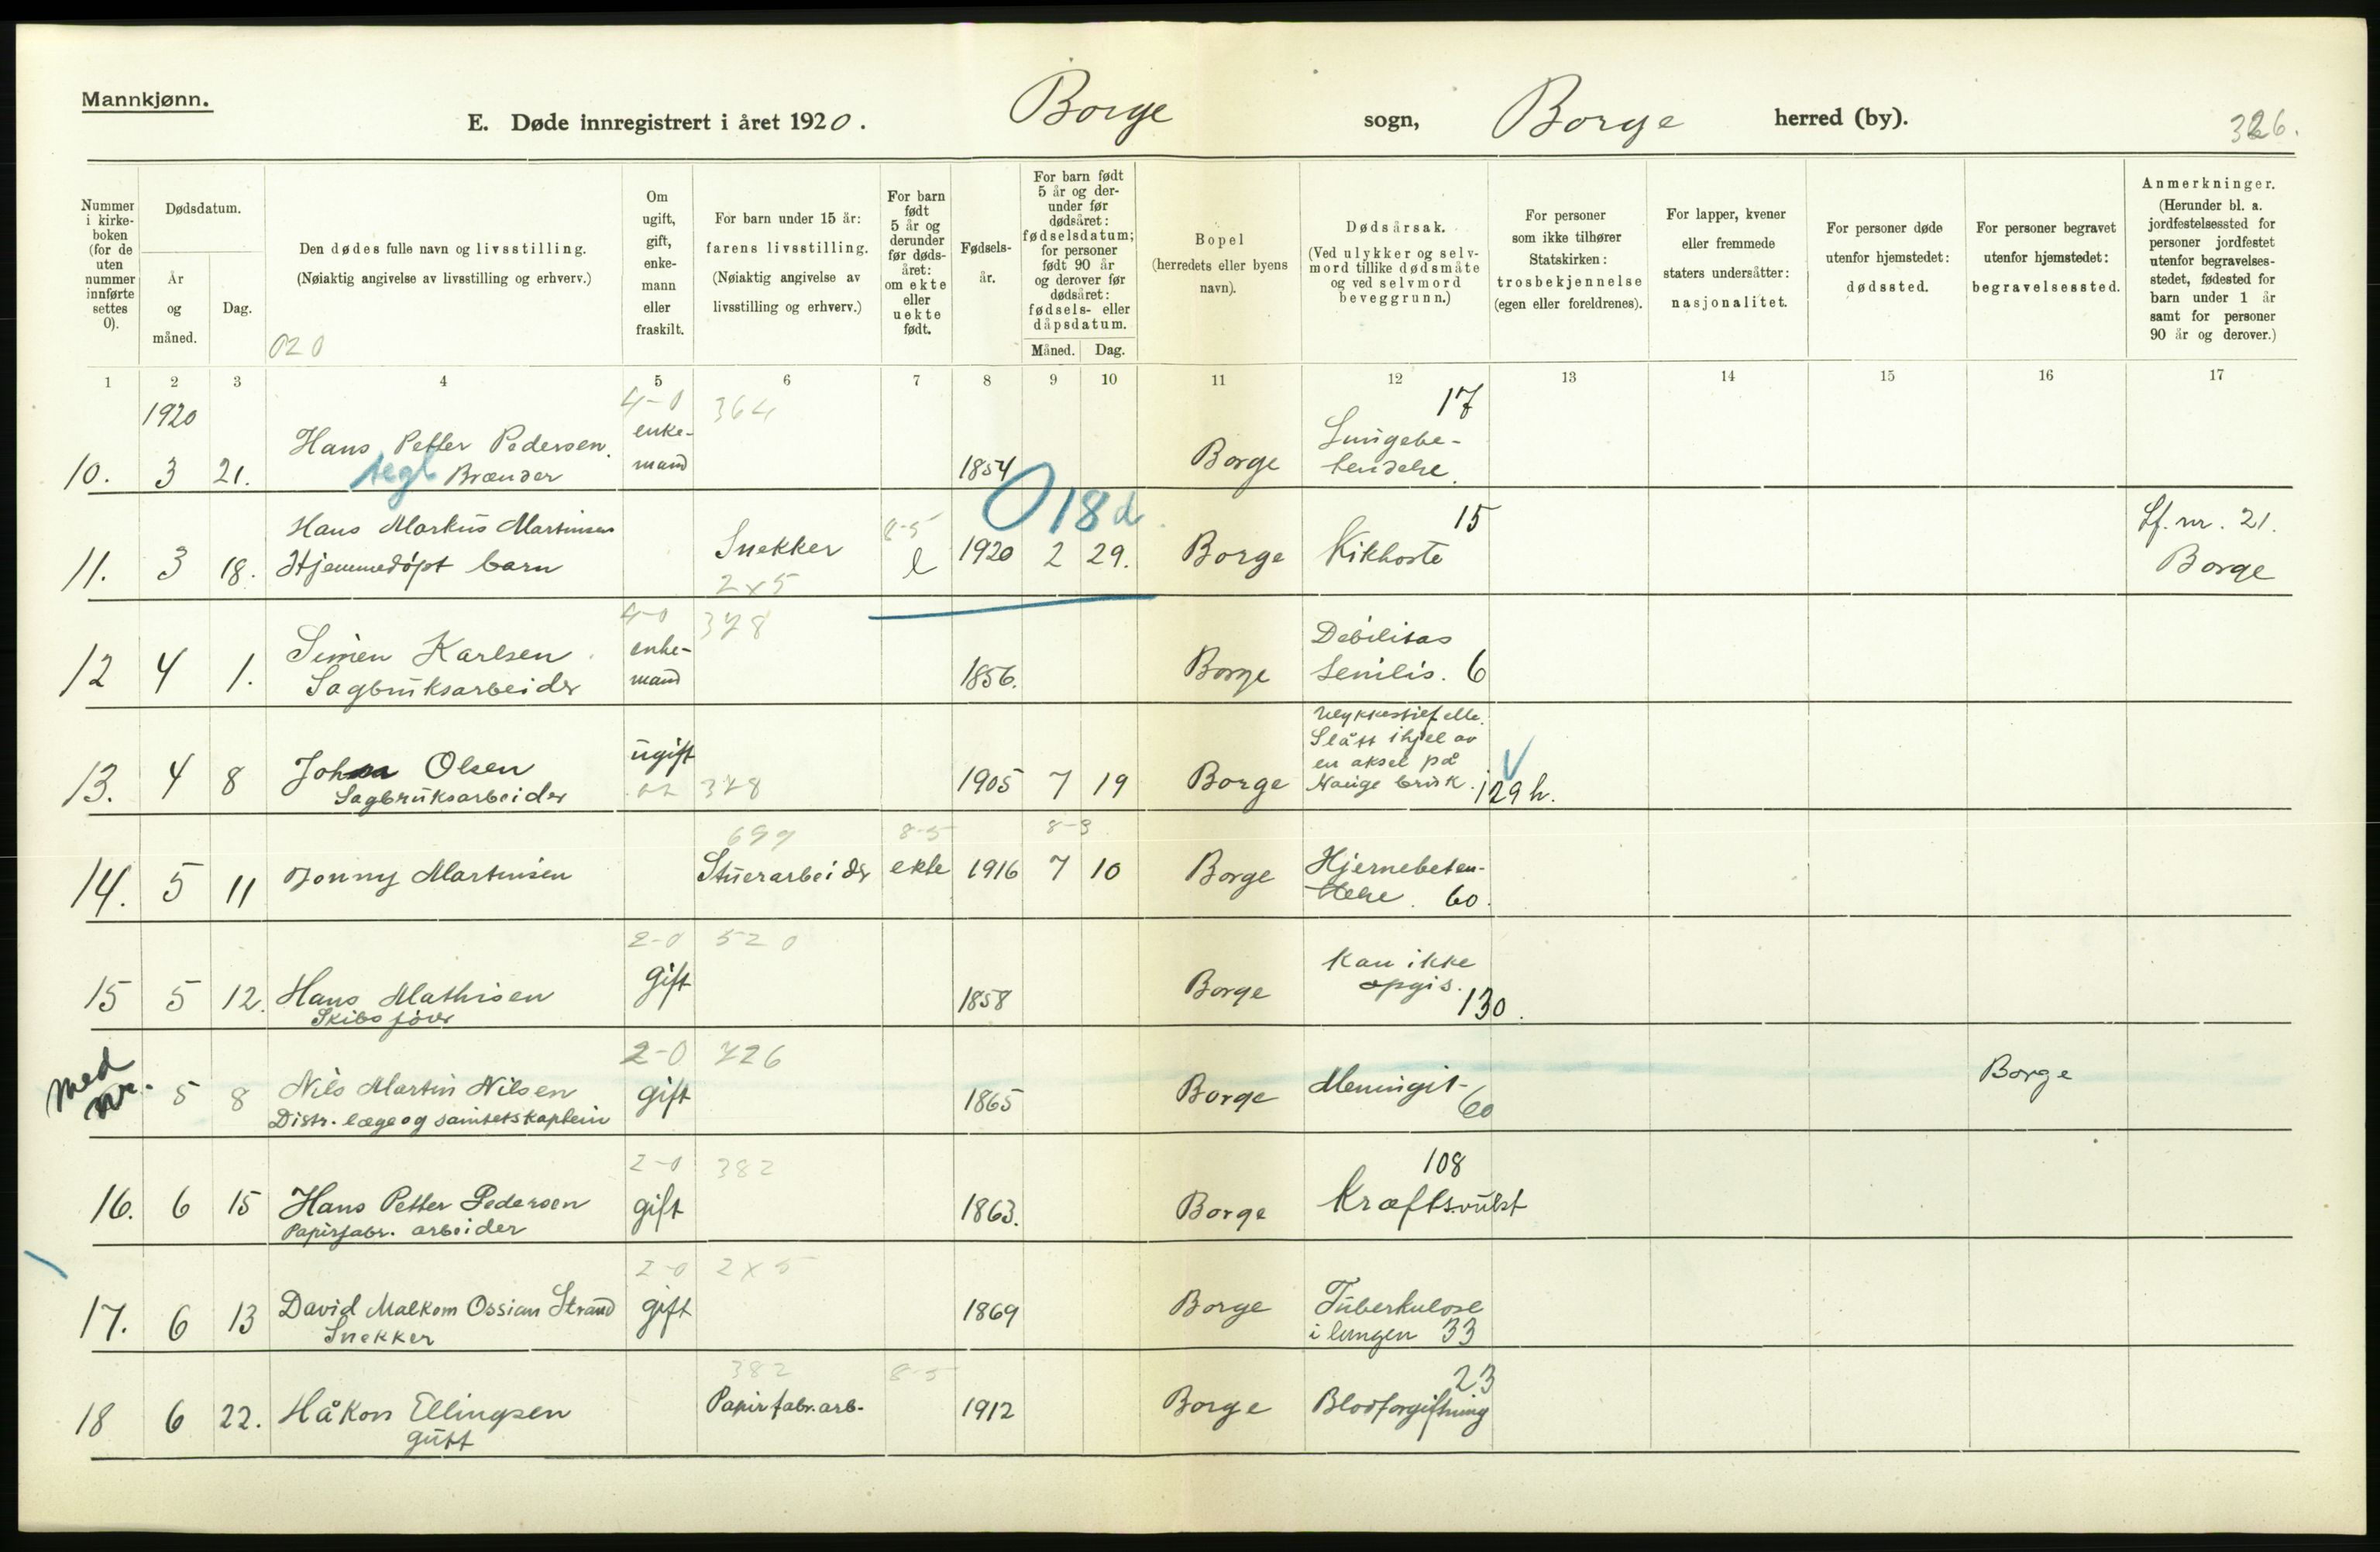 Mannkjønn.
E. Døde innregistrert i året 1920. Borge sogn, Borge herred (by). 326.
Nummer i kirke-boken (for de uten nummer innførte settes 0).
Dødsdatum.
År og måned.
Dag.
Den dødes fulle navn og livsstilling.
(Nøiaktig angivelse av livsstilling og erhverv.)
020
Om ugift, gift, enke-mann eller fraskilt.
For barn under 15 år:
farens livsstilling.
(Nøiaktig angivelse av livsstilling og erhverv.)
For barn født 5 år og derunder før døds-året: om ekte eller uekte født.
Fødsels-år.
For barn født 5 år og der-under før dødsåret: fødselsdatum; for personer født 90 år og derover før dødsåret: fødsels- eller dåpsdatum.
Måned. Dag.
Bopel
(herredets eller byens navn).
Dødsårsak.
(Ved ulykker og selv-mord tillike dødsmåte og ved selvmord beveggrunn.)
For personer som ikke tilhører Statskirken: trosbekjennelse (egen eller foreldrenes).
For lapper, kvener eller fremmede staters undersåtter: nasjonalitet.
For personer døde utenfor hjemstedet: dødssted.
For personer begravet utenfor hjemstedet: begravelsessted.
Anmerkninger.
(Herunder bl. a. jordfestelsessted for personer jordfestet utenfor begravelses-stedet, fødested for barn under 1 år samt for personer 90 år og derover.)
1 2 3 4 5 6 7 8 9 10 11 12 13 14 15 16 17
1920 4-0 364 17
10. 3 21. Hans Petter Pedersen. tegl Brænder enke-mand 1854 Borge Lungebe-tendelse.
018d 15
11. 3 18. Hans Markus Martinsen Hjemmedøpt barn Snekker 2x5 8-5 e 1920 2 29. Borge Kikhoste Lf. nr. 21. Borge
4-0 378
12 4 1. Simen Karlsen Sagbruksarbeider enke-mand 1856. Borge Debilitas senilis. 6
13. 4 8 Johan Olsen Sagbruksarbeider ugift 378 1905 7 19 Borge Ulykkestilfelle. Slått ihjel av en aksel på Hauge bruk. 129h.
699 8-5 8-3
14. 5 11 Jonny Martinsen Stuerarbeider ekte 1916 7 10 Borge Hjernebeten-delse. 60.
2-0 520
15 5 12. Hans Mathisen Skibsfører gift 1858 Borge Kan ikke opgis. 130.
2-0 726
Med nr. 5 8 Nils Martin Nilsen Distr. læge og sanitetskaptein gift 1865 Borge Meningit- 60 Borge
2-0 382 108
16. 6 15 Hans Petter Pedersen Papirfabr. arbeider gift 1863. Borge Kræftsvulst
2-0 2x5
17. 6 13 David Malkom Ossian Strand Snekker gift 1869 Borge Tuberkulose i lungen 33
382 8-5 23
18 6 22. Håkon Ellingsen gutt Papirfabr. arb. 1912 Borge Blodforgiftning